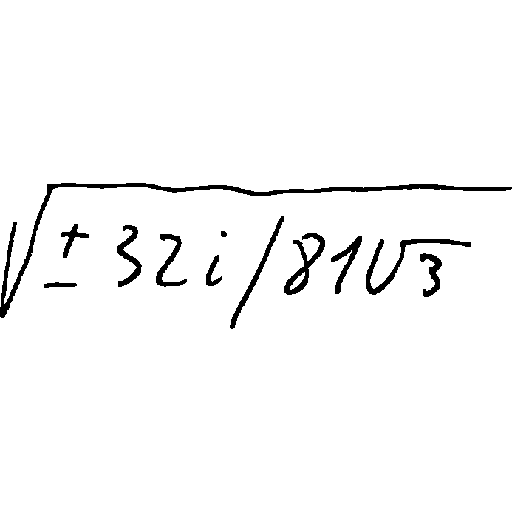 √(± 32i/81√3)